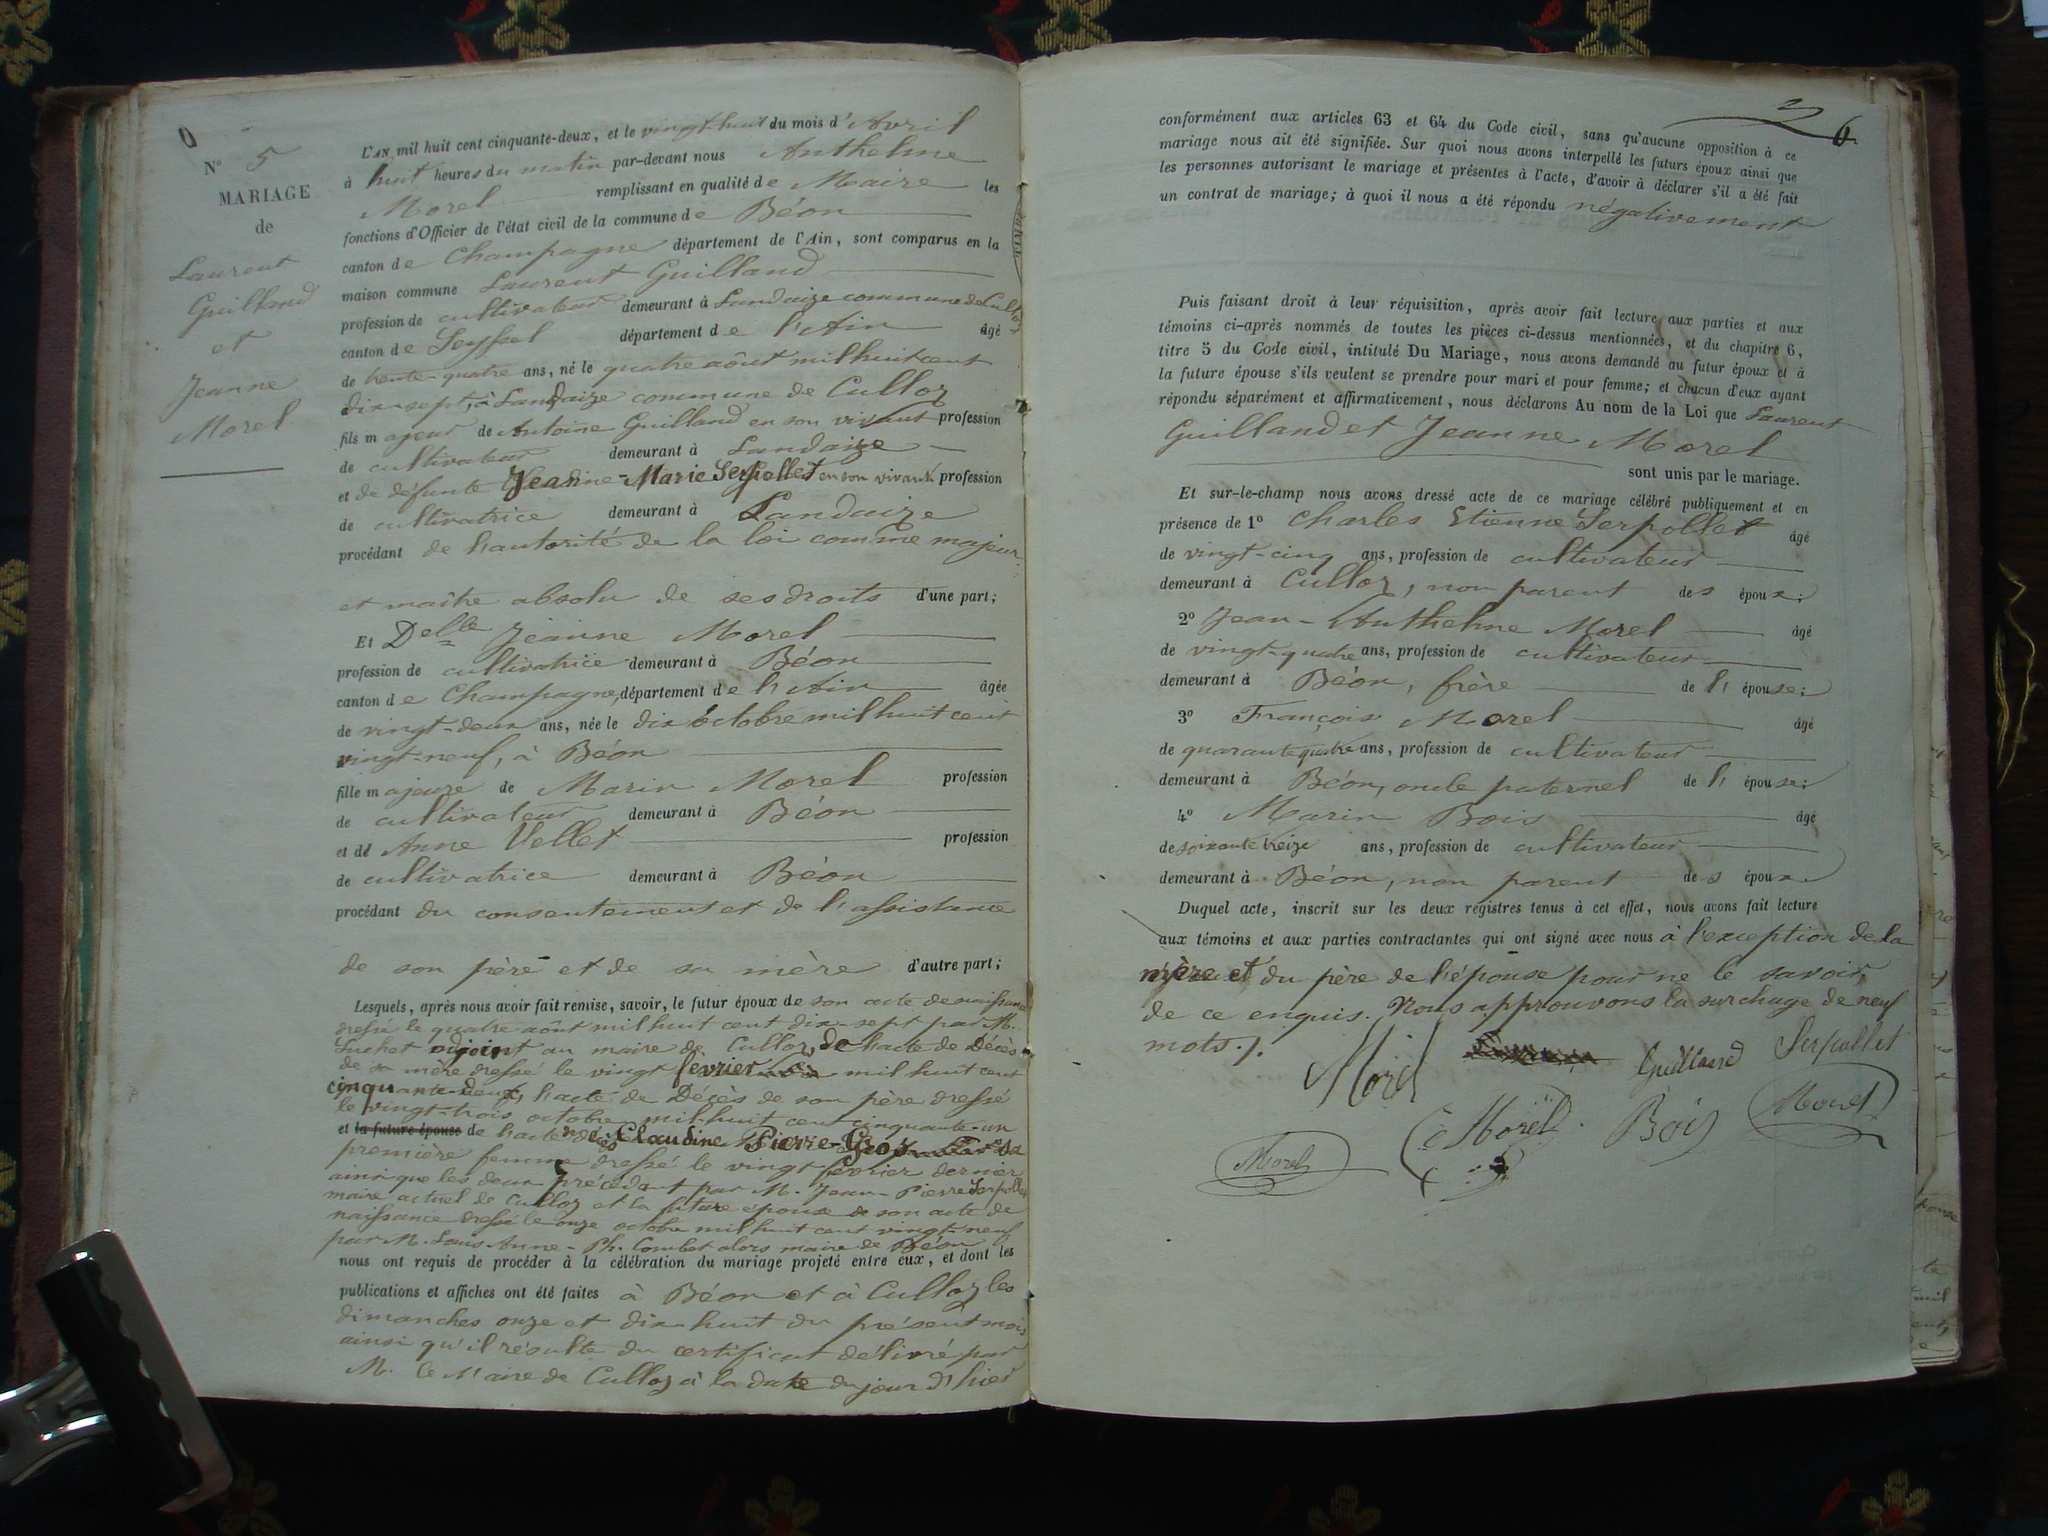 N° 5
MARIAGE
de
Laurent
Guilland
et
Jeanne
Morel
L'AN mil huit cent cinquante-deux, et le vingt-huit du mois d'Avril
à huit heures du matin par-devant nous Anthelme
Morel remplissant en qualité de Maire les
fonctions d'Officier de l'état civil de la commune de Béon
canton de Champagne département de l'Ain, sont comparus en la
maison commune Laurent Guilland
profession de cultivateur demeurant à Landaize commune de Culloz
canton de Seyssel département de l'Ain âgé
de trente-quatre ans, né le quatre août mil huit cent
dix-sept, à Landaize commune de Culloz
fils majeur de Antoine Guilland en son vivant profession
de cultivateur demeurant à Landaize
et de défunte Jeanne-Marie Serpollet en son vivant profession
de cultivatrice demeurant à Landaize
procédant de l'autorité de la loi comme majeur
et maître absolu de ses droits d'une part;
Et Delle Jeanne Morel
profession de cultivatrice demeurant à Béon
canton de Champagne, département de l'Ain âgée
de vingt-deux ans, née le dix octobre mil huit cent
vingt-neuf, à Béon
fille majeure de Marin Morel profession
de cultivateur demeurant à Béon
et de Anne Vellet profession
de cultivatrice demeurant à Béon
procédant du consentement et de l'assistance
de son père et de sa mère d'autre part;
Lesquels, après nous avoir fait remise, savoir, le futur époux de son acte de naissance
dressé le quatre août mil huit cent dix-sept par M.
Luchet adjoint au maire de Culloz, de l'acte de Décès
de sa mère dressé le vingt février mil huit cent
cinquante-deux, l'acte de Décès de son père dressé
le vingt-trois octobre mil huit cent cinquante-un
et la future épouse de l'acte de décès de Claudine Pierre-Gros sa
première femme dressé le vingt février dernier
ainsi que les deux précédant par M. Jean-Pierre Serpollet
maire actuel de Culloz et la future épouse de son acte de
naissance dressé le onze octobre mil huit cent vingt-neuf
par M. Louis-Anne-Ph. Combet alors maire de Béon
nous ont requis de procéder à la célébration du mariage projeté entre eux, et dont les
publications et affiches ont été faites à Béon et à Culloz les
dimanches onze et dix-huit du présent mois
ainsi qu'il résulte du certificat délivré par
M. le Maire de Culloz à la date du jour d'hier
6
conformément aux articles 63 et 64 du Code civil, sans qu'aucune opposition à ce
mariage nous ait été signifiée. Sur quoi nous avons interpellé les futurs époux ainsi que
les personnes autorisant le mariage et présentes à l'acte, d'avoir à déclarer s'il a été fait
un contrat de mariage; à quoi il nous a été répondu négativement
Puis faisant droit à leur réquisition, après avoir fait lecture aux parties et aux
témoins ci-après nommés de toutes les pièces ci-dessus mentionnées, et du chapitre 6,
titre 5 du Code civil, intitulé Du Mariage, nous avons demandé au futur époux et à
la future épouse s'ils veulent se prendre pour mari et pour femme; et chacun d'eux ayant
répondu séparément et affirmativement, nous déclarons Au nom de la Loi que Laurent
Guilland et Jeanne Morel
sont unis par le mariage.
Et sur-le-champ nous avons dressé acte de ce mariage célébré publiquement et en
présence de 1° Charles Etienne Serpollet âgé
de vingt-cinq ans, profession de cultivateur
demeurant à Culloz, non parent des époux;
2° Jean-Anthelme Morel âgé
de vingt-quatre ans, profession de cultivateur
demeurant à Béon, frère de l'épouse;
3° François Morel âgé
de quarante quatre ans, profession de cultivateur
demeurant à Béon, oncle paternel de l'épouse;
4° Marin Bois âgé
de soixante treize ans, profession de cultivateur
demeurant à Béon, non parent des époux.
Duquel acte, inscrit sur les deux registres tenus à cet effet, nous avons fait lecture
aux témoins et aux parties contractantes qui ont signé avec nous à l'exception de la
mère et du père de l'épouse pour ne le savoir,
de ce enquis. Nous approuvons la surchage de neuf
mots./.
Morel Guilland Serpollet
Morel Morel Bois Morel